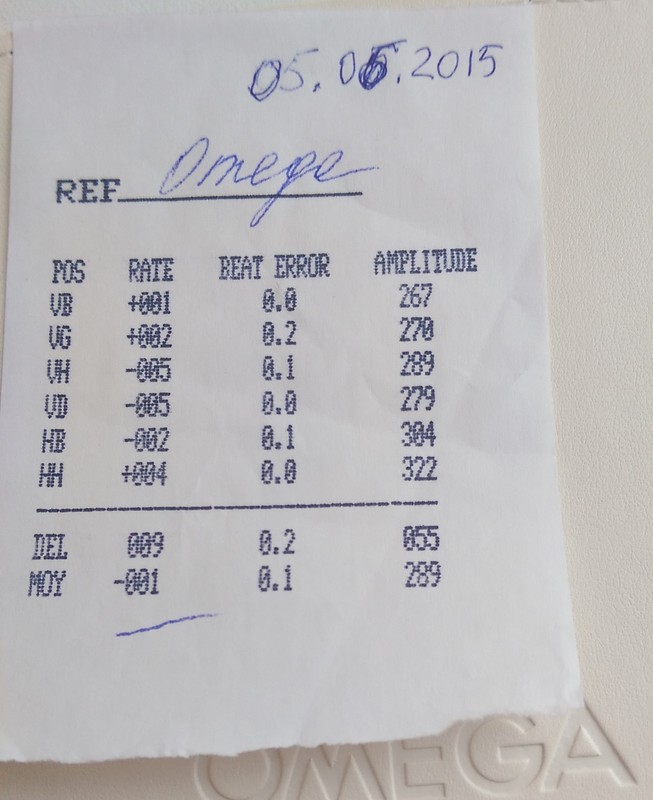 05.06.2015
REF Omega
POS RATE BEAT ERROR AMPLITUDE
VB +001 0.0 267
VG +002 0.2 270
VH -005 0.1 289
VD -005 0.0 279
HB -002 0.1 304
HH +004 0.0 322
DEL 009 0.2 055
MOY -001 0.1 289
OMEGA